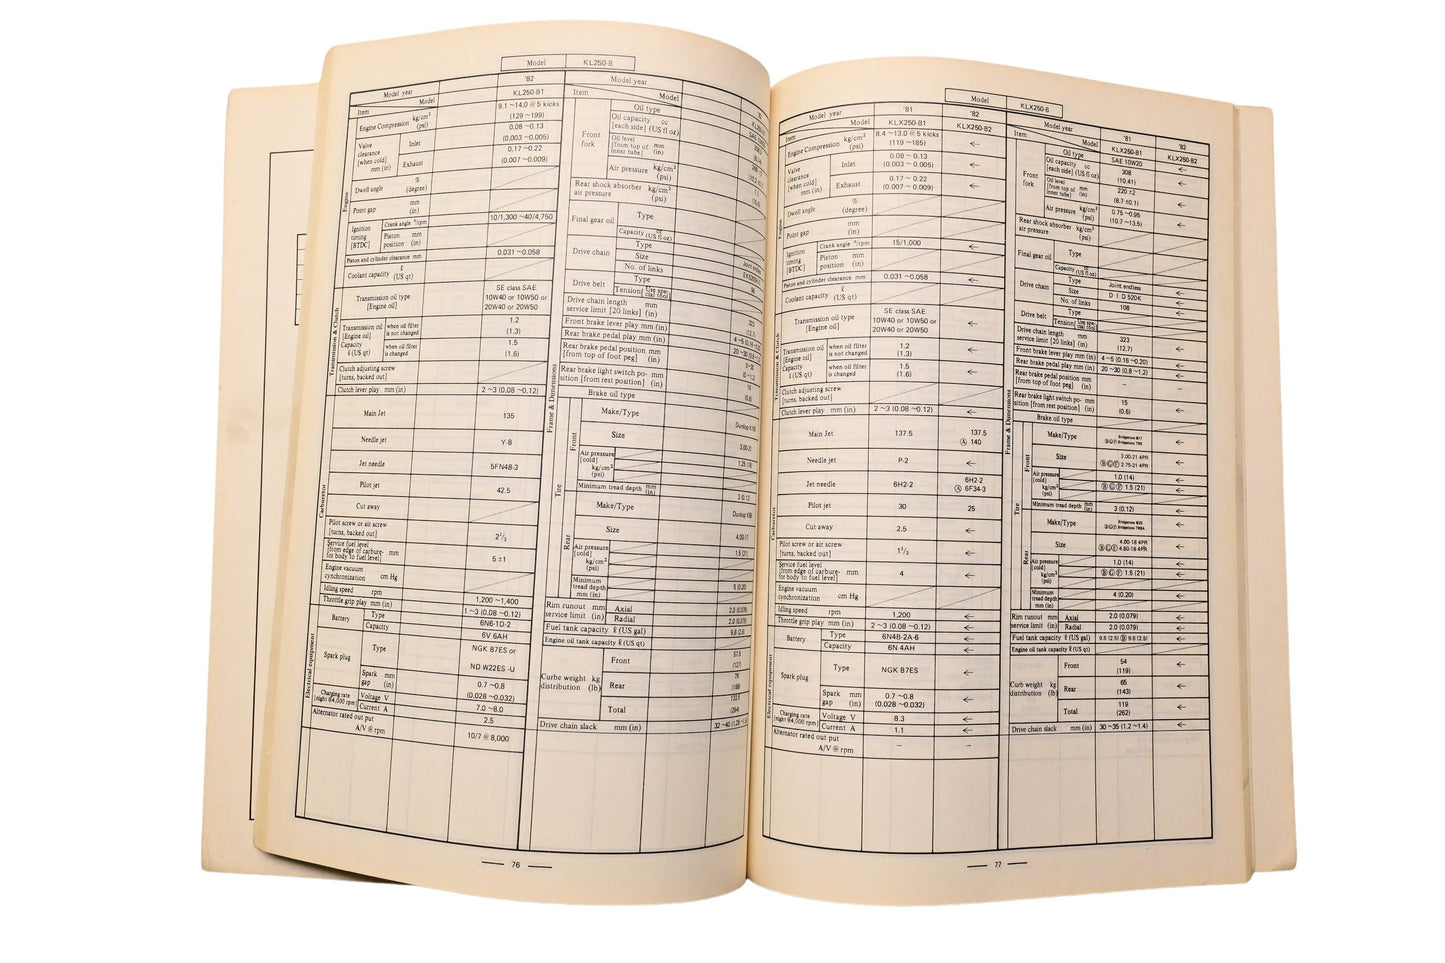 Model KL250-B
Model year '82
Item Model KL250-B1
Engine
Engine Compression kg/cm² (psi) 9.1 ~14.0 @ 5 kicks
(129 ~199)
Valve clearance [when cold] mm (in) Inlet 0.08 ~ 0.13
(0.003 ~0.005)
Exhaust 0.17 ~0.22
(0.007 ~0.009)
Dwell angle % (degree)
Point gap mm (in)
Ignition timing [BTDC] Crank angle °/rpm 10/1,300 ~40/4,750
Piston position mm (in)
Piston and cylinder clearance mm 0.031 ~0.058
Coolant capacity ℓ (US qt)
Transmission & Clutch
Transmission oil type [Engine oil] SE class SAE
10W40 or 10W50 or
20W40 or 20W50
Transmission oil [Engine oil] Capacity ℓ (US qt) when oil filter is not changed 1.2
(1.3)
when oil filter is changed 1.5
(1.6)
Clutch adjusting screw [turns, backed out]
Clutch lever play mm (in) 2 ~3 (0.08 ~0.12)
Carburetor
Main Jet 135
Needle jet Y-8
Jet needle 5FN48-3
Pilot jet 42.5
Cut away
Pilot screw or air screw [turns, backed out] 2¹/₃
Service fuel level [from edge of carbure- for body to fuel level] mm 5 ±1
Engine vacuum cynchronization cm Hg
Idling speed rpm 1,200 ~1,400
Throttle grip play mm (in) 1 ~3 (0.08 ~0.12)
Electrical equipment
Battery Type 6N6-1D-2
Capacity 6V 6AH
Spark plug Type NGK B7ES or
ND W22ES -U
Spark gap mm (in) 0.7 ~0.8
(0.028 ~0.032)
Charging rate [night @4,000 rpm] Voltage V 7.0 ~8.0
Current A 2.5
Alternator rated out put A/V @ rpm 10/7 @ 8,000
Model year
Item Model
Frame & Dimensions
Front fork Oil type
Oil capacity cc [each side] (US fl oz)
Oil level [from top of inner tube] mm (in)
Air pressure kg/cm² (psi)
Rear shock absorber air pressure kg/cm² (psi)
Final gear oil Type
Capacity cc (US fl oz)
Drive chain Type Joint endless
Size
No. of links
Drive belt Type
Tension [Use spe- cial tool]
Drive chain length service limit [20 links] mm (in) 323
(12.7)
Front brake lever play mm (in)
Rear brake pedal play mm (in)
Rear brake pedal position mm [from top of foot peg] (in)
Rear brake light switch po- mm sition [from rest position] (in) 15
(0.6)
Brake oil type
Tire
Front Make/Type
Size 3.00-21
Air pressure [cold] kg/cm² (psi)
Minimum tread depth mm (in) 3 (0.12)
Rear Make/Type
Size 4.00-17
Air pressure [cold] kg/cm² (psi) 1.5 (21)
Minimum tread depth mm (in) 5 (0.20)
Rim runout mm service limit (in) Axial 2.0 (0.079
Radial 2.0 (0.079
Fuel tank capacity ℓ (US gal)
Engine oil tank capacity ℓ (US qt)
Curbe weight kg distribution (lb) Front 57.5
(127)
Rear 76
(168)
Total 133.5
(294)
Drive chain slack mm (in)
76
Model KLX250-B
Model year '81 '82
Item Model KLX250-B1 KLX250-B2
Engine
Engine Compression kg/cm² (psi) 8.4 ~13.0 @ 5 kicks ←
(119 ~185)
Valve clearance [when cold] mm (in) Inlet 0.08 ~ 0.13 ←
(0.003 ~0.005)
Exhaust 0.17 ~ 0.22 ←
(0.007 ~0.009)
Dwell angle % (degree)
Point gap mm (in)
Ignition timing [BTDC] Crank angle °/rpm 15/1,000 ←
Piston position mm (in)
Piston and cylinder clearance mm 0.031 ~0.058 ←
Coolant capacity ℓ (US qt)
Transmission & Clutch
Transmission oil type [Engine oil] SE class SAE ←
10W40 or 10W50 or
20W40 or 20W50
Transmission oil [Engine oil] Capacity ℓ (US qt) when oil filter is not changed 1.2 ←
(1.3)
when oil filter is changed 1.5 ←
(1.6)
Clutch adjusting screw [turns, backed out]
Clutch lever play mm (in) 2 ~3 (0.08 ~0.12) ←
Carburetor
Main Jet 137.5 137.5
Ⓐ 140
Needle jet P-2 ←
Jet needle 6H2-2 6H2-2
Ⓐ 6F34-3
Pilot jet 30 25
Cut away 2.5 ←
Pilot screw or air screw [turns, backed out] 1¹/₃ ←
Service fuel level [from edge of carbure- for body to fuel level] mm 4 ←
Engine vacuum cynchronization cm Hg
Idling speed rpm 1,200 ←
Throttle grip play mm (in) 2 ~3 (0.08 ~0.12) ←
Electrical equipment
Battery Type 6N4B-2A-6 ←
Capacity 6N 4AH ←
Spark plug Type NGK B7ES ←
Spark gap mm (in) 0.7 ~0.8 ←
(0.028 ~0.032)
Charging rate [night @4,000 rpm] Voltage V 8.3 ←
Current A 1.1 ←
Alternator rated out put A/V @ rpm – –
Model year '81 '82
Item Model KLX250-B1 KLX250-B2
Frame & Dimensions
Front fork Oil type SAE 10W20 ←
Oil capacity cc [each side] (US fl oz) 308 ←
(10.41)
Oil level [from top of inner tube] mm (in) 220 ±2 ←
(8.7 ±0.1)
Air pressure kg/cm² (psi) 0.75 ~0.95 ←
(10.7 ~13.5)
Rear shock absorber air pressure kg/cm² (psi)
Final gear oil Type
Capacity cc (US fl oz)
Drive chain Type Joint endless ←
Size D I D 520K ←
No. of links 108 ←
Drive belt Type
Tension [Use spe- cial tool]
Drive chain length service limit [20 links] mm (in) 323 ←
(12.7)
Front brake lever play mm (in) 4 ~5 (0.16 ~0.20) ←
Rear brake pedal play mm (in) 20 ~30 (0.8 ~1.2) ←
Rear brake pedal position mm [from top of foot peg] (in) – –
Rear brake light switch po- mm sition [from rest position] (in) 15 ←
(0.6)
Brake oil type
Tire
Front Make/Type ←
Size 3.00-21 4PR ←
ⒷⒼⒻ 2.75-21 4PR
Air pressure [cold] kg/cm² (psi) 1.0 (14) ←
ⒷⒼⒻ 1.5 (21) ←
Minimum tread depth mm (in) 3 (0.12) ←
Rear Make/Type ←
Size 4.00-18 4PR ←
ⒷⒼⒻ 4.60-18 4PR
Air pressure [cold] kg/cm² (psi) 1.0 (14) ←
ⒷⒼⒻ 1.5 (21) ←
Minimum tread depth mm (in) 4 (0.20) ←
Rim runout mm service limit (in) Axial 2.0 (0.079) ←
Radial 2.0 (0.079) ←
Fuel tank capacity ℓ (US gal) 9.5 (2.5) Ⓑ 9.6 (2.5) ←
Engine oil tank capacity ℓ (US qt)
Curb weight kg distribution (lb) Front 54 ←
(119)
Rear 65 ←
(143)
Total 119 ←
(262)
Drive chain slack mm (in) 30 ~35 (1.2 ~1.4) ←
77